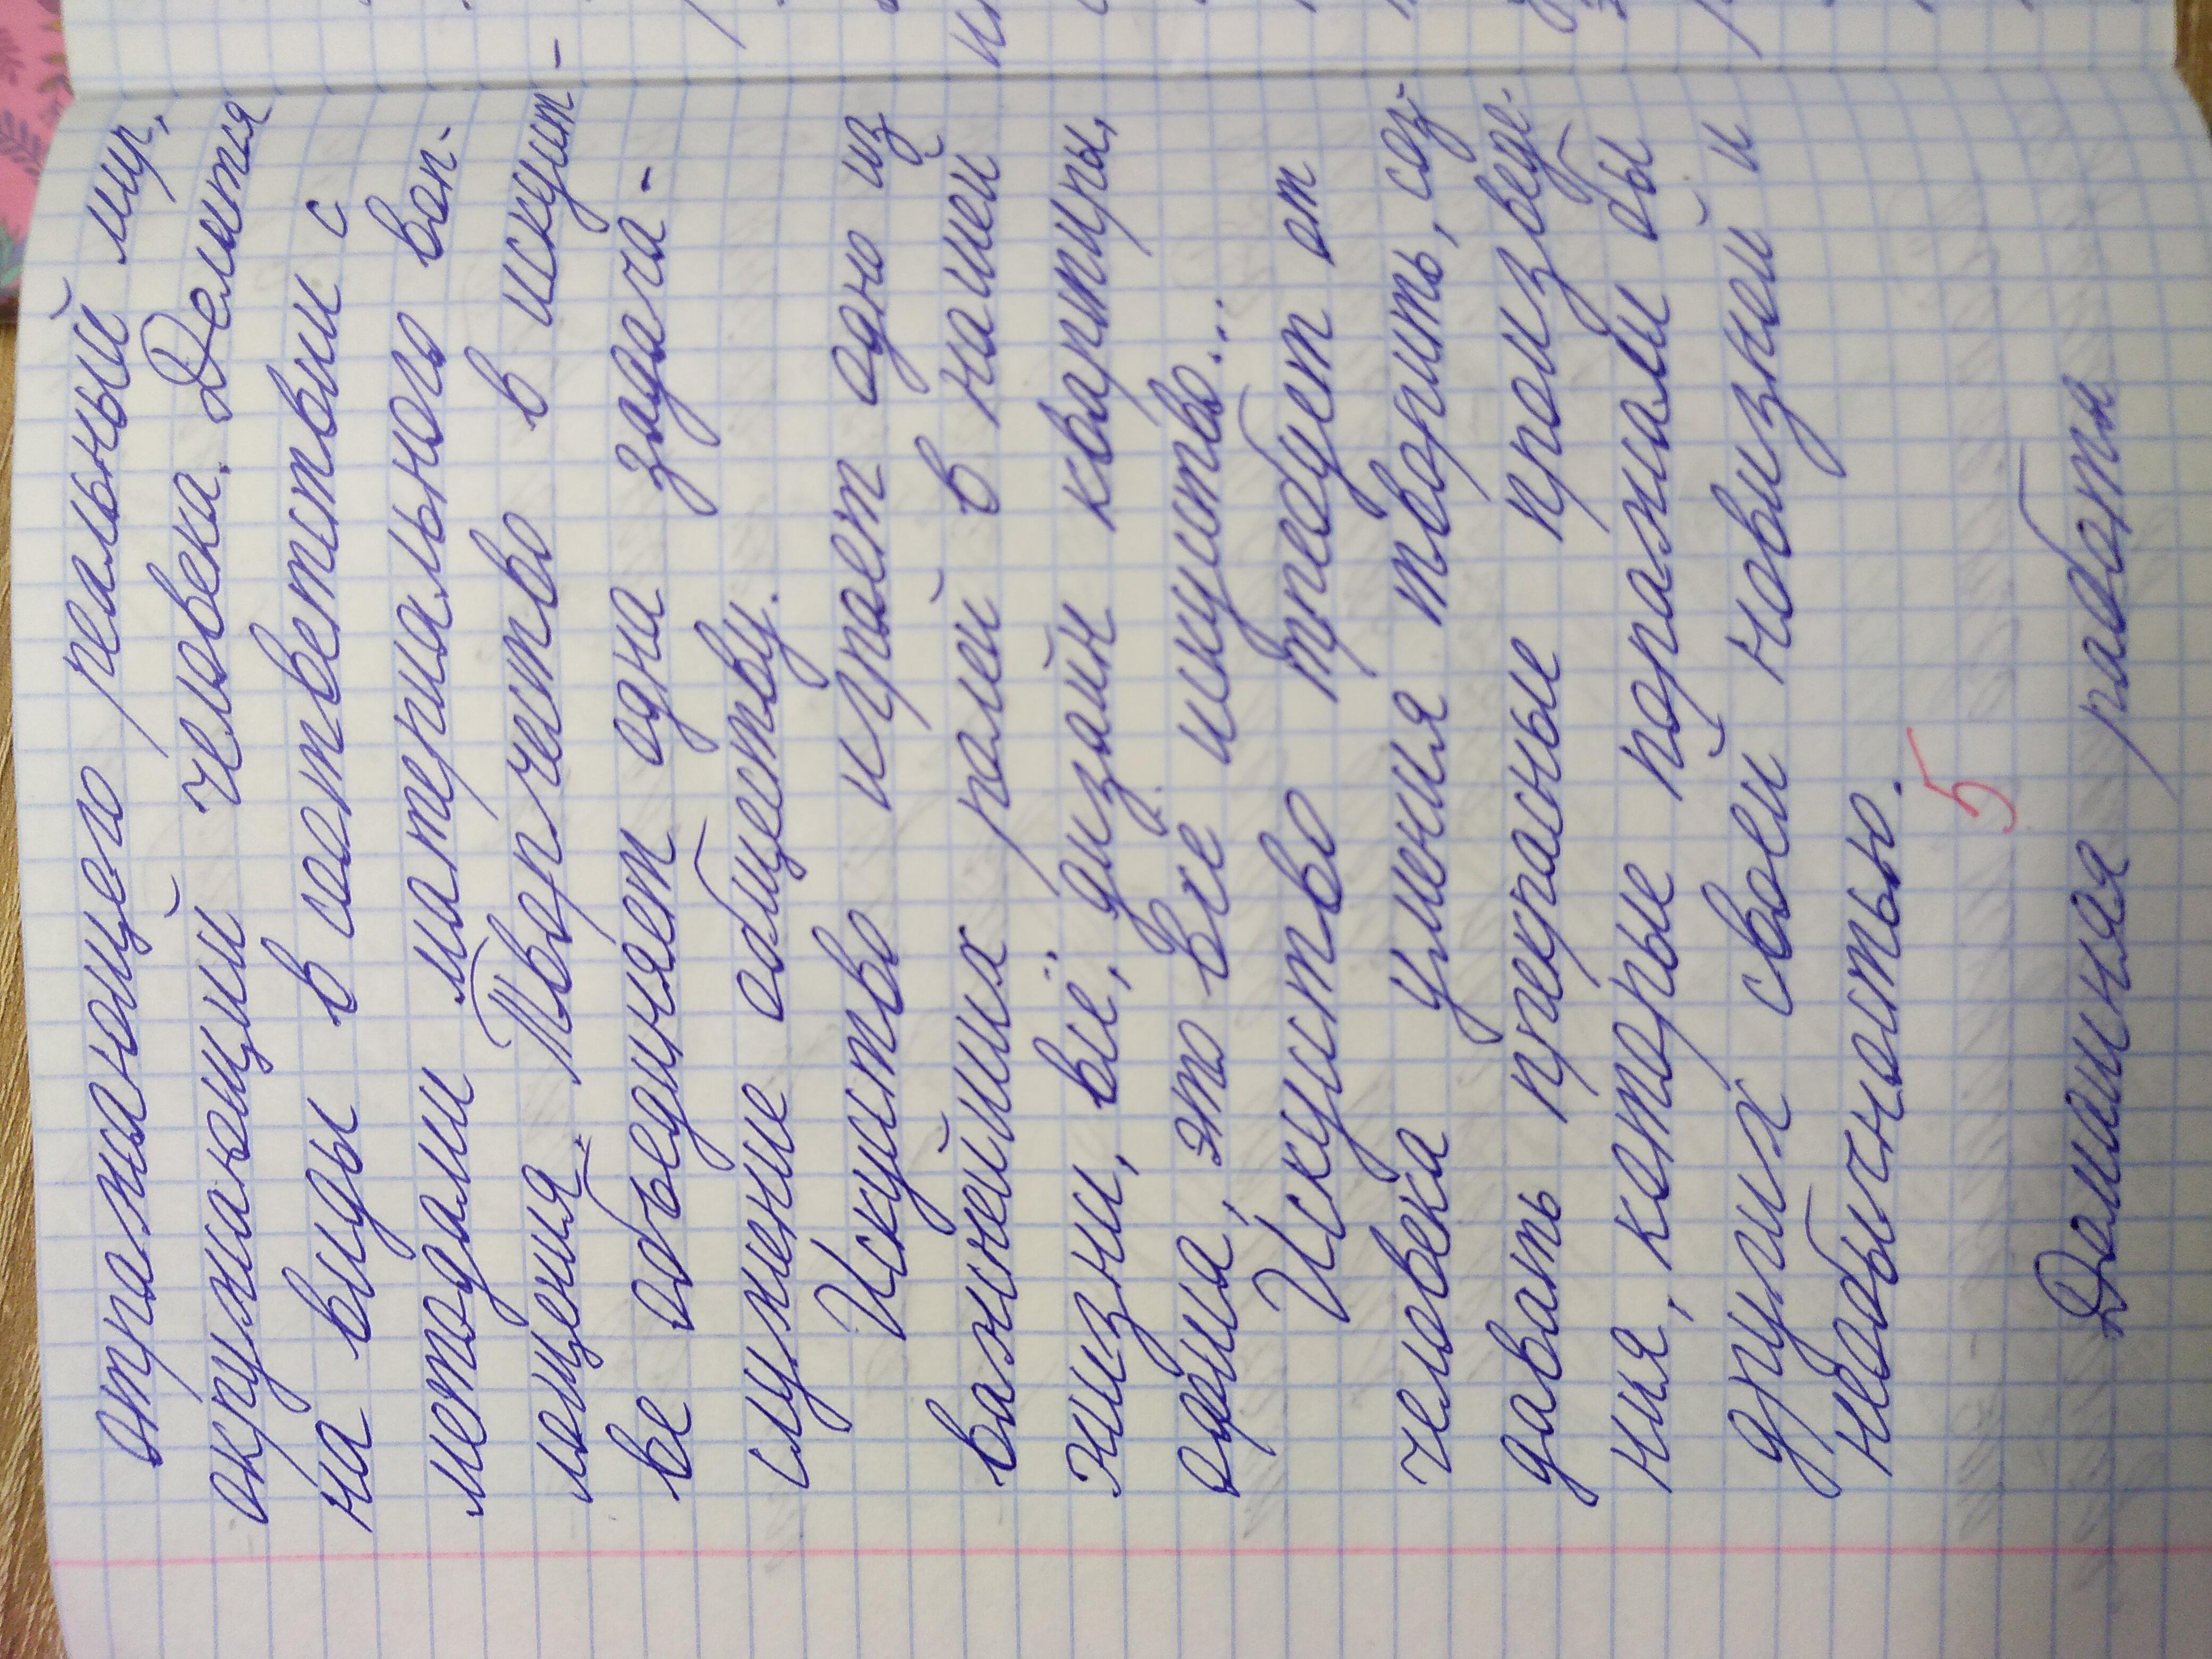 отражающего реальный мир,
окружающий человека. Делится
на виды в соответствии с
методами материального воп-
лощения. Творчество в искуст-
ве объединяет одна задача-
служение обществу.
Искуство играет одно из
важнейших ролей в нашей
жизни, всё, дизайн квартиры,
офиса, это все искуство...
Искуство требует от
человека умения творить, соз-
давать прекрасные произведе-
ния, которые поражали бы
других своей новизной и
необычностью.
5
Домашняя работы